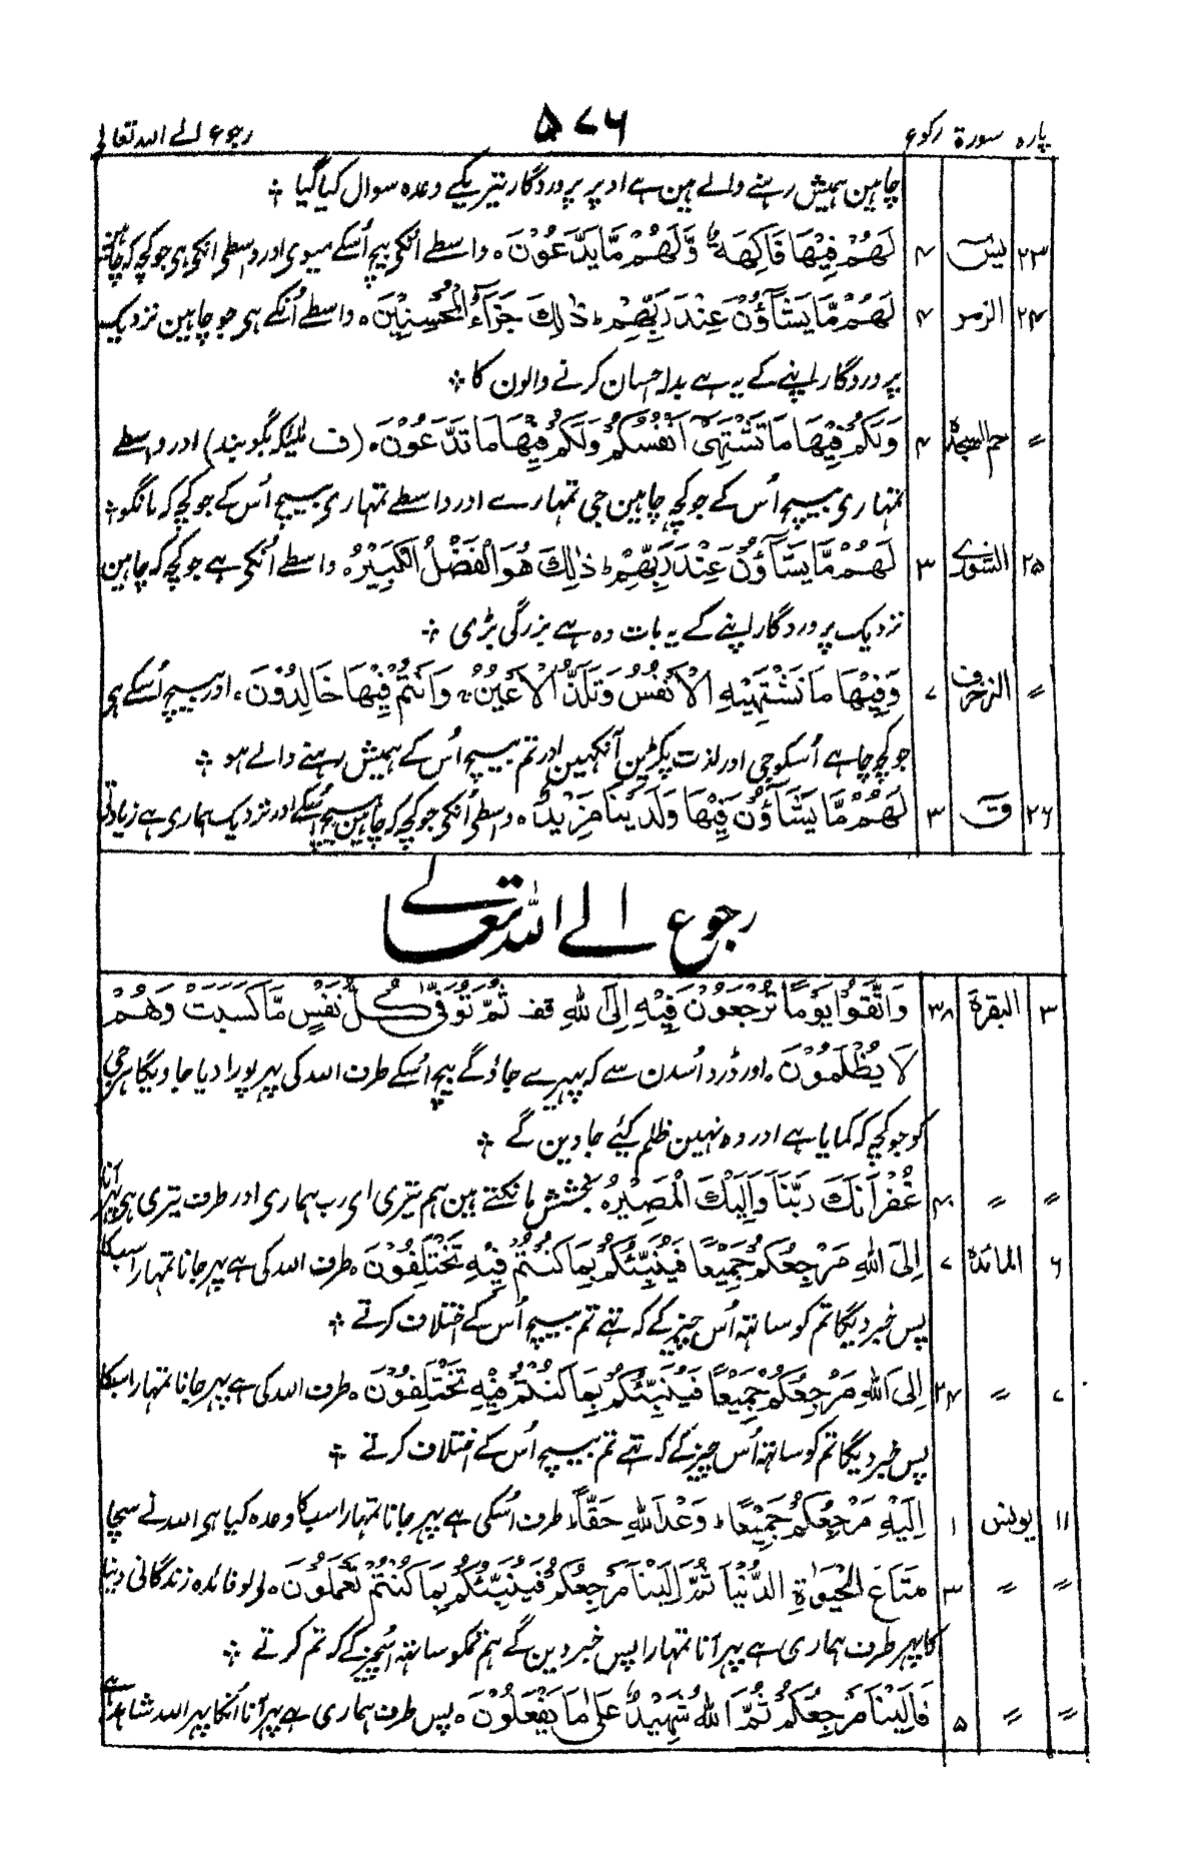 پارہ سورۃ رکوع ۵۷۶ رجوع الے اللہ تعالی
چاہین ہمیش رہنے والے ہین ہے اوپر پروردگار تیریکے وعدہ سوال کیا گیا ؞
۲۳ یٰسٓ ۴ لَهُمْ فِيْهَا فَاكِهَةٌ وَّلَهُمْ مَّا يَدَّعُوْنَ ہ واسطے اُنکی بیچ اُسکے میوی اور واسطی انکی ہی جو کچھ کہ چاہتے
۲۴ الزمر ۴ لَهُمْ مَّا يَشَآؤُنَ عِنْدَ رَبِّهِمْ ط ذٰلِكَ جَزَآءُ الْمُحْسِنِيْنَ ہ واسطے اُنکے ہی جو چاہین نزدیک
پروردگار اپنے کے یہ ہے بدلا احسان کرنے والون کا ؞
〃 حم السجدۃ ۴ وَلَكُمْ فِيْهَا مَا تَشْتَهِيْٓ اَنْفُسُكُمْ وَلَكُمْ فِيْهَا مَا تَدَّعُوْنَ ہ (ف ) اور واسطے
تمہاری بیچ اُس کے جو کچھ چاہین جی تمہارے اور واسطے تمہاری بیچ اُس کے جو کچھ کہ مانگو ؞
۲۵ الشورے ۳ لَهُمْ مَّا يَشَآؤُنَ عِنْدَ رَبِّهِمْ ط ذٰلِكَ هُوَ الْفَضْلُ الْكَبِيْرُ ہ واسطے اُنکی ہے جو کچھ کہ چاہین
نزدیک پروردگار اپنے کے یہ بات وہ ہے بزرگی بڑی ؞
〃 الزخرف ۷ وَفِيْهَا مَا تَشْتَهِيْهِ الْاَنْفُسُ وَتَلَذُّ الْاَعْيُنُ ج وَاَنْتُمْ فِيْهَا خَالِدُوْنَ ہ اور بیچ اُسکے ہی
جو کچھ چاہے اُسکو جی اور لذت پکڑین آنکہین اور تم بیچ اُس کے ہمیش رہنے والے ہو ؞
۲۶ قٓ ۳ لَهُمْ مَّا يَشَآؤُنَ فِيْهَا وَلَدَيْنَا مَزِيْدٌ ہ واسطی اُنکی جو کچھ کہ چاہین بیچ اُسکے اور نزدیک ہماری ہے زیادتی
رجوع الے اللہ تعالے
۳ البقرۃ ۳۸ وَاتَّقُوْا يَوْمًا تُرْجَعُوْنَ فِيْهِ اِلَى اللهِ قف ثُمَّ تُوَفّٰى كُلُّ نَفْسٍ مَّا كَسَبَتْ وَهُمْ
لَا يُظْلَمُوْنَ ہ اور ڈرو اُسدن سے کہ پہیرے جاؤگے بیچ اُسکے طرف اللہ کی پہر پورا دیا جاویگا ہر جی
کو جو کچھ کہ کمایا ہے اور وہ نہین ظلم کیئے جاوین گے ؞
〃 〃 ۴۰ غُفْرَانَكَ رَبَّنَا وَاِلَيْكَ الْمَصِيْرُ ہ بخشش مانگتے ہین ہم تیری ای رب ہماری اور طرف تیری ہی پہر آنا
۶ المائدۃ ۷ اِلَى اللهِ مَرْجِعُكُمْ جَمِيْعًا فَيُنَبِّئُكُمْ بِمَا كُنْتُمْ فِيْهِ تَخْتَلِفُوْنَ ہ طرف اللہ کی ہے پہر جانا تمہارا سب کا
پس خبر دیگا تم کو ساتہہ اُس چیز کے کہ تہے تم بیچ اُس کے اختلاف کرتے ؞
۷ 〃 ۱۴ اِلَى اللهِ مَرْجِعُكُمْ جَمِيْعًا فَيُنَبِّئُكُمْ بِمَا كُنْتُمْ فِيْهِ تَخْتَلِفُوْنَ ہ طرف اللہ کی ہے پہر جانا تمہارا سبکا
پس خبر دیگا تم کو ساتہہ اُس چیز کے کہ تہے تم بیچ اُس کے اختلاف کرتے ؞
۱۱ یونس ۱ اِلَيْهِ مَرْجِعُكُمْ جَمِيْعًا ط وَعْدَ اللهِ حَقًّا ط طرف اُسکی ہے پہر جانا تمہارا سب کا وعدہ کیا ہی اللہ نے سچا
〃 〃 ۳ مَتَاعَ الْحَيٰوةِ الدُّنْيَا ثُمَّ اِلَيْنَا مَرْجِعُكُمْ فَنُنَبِّئُكُمْ بِمَا كُنْتُمْ تَعْمَلُوْنَ ہ لو فائدہ زندگانی دنیا
کا پہر طرف ہماری ہے پہر آنا تمہارا پس خبر دین گے ہم تمکو ساتہہ اُس چیز کے کہ تم کرتے ؞
〃 〃 ۵ فَاِلَيْنَا مَرْجِعُكُمْ ثُمَّ اللهُ شَهِيْدٌ عَلٰى مَا يَفْعَلُوْنَ ہ پس طرف ہماری ہے پہر آنا اُنکا پہر اللہ شاہد ہے